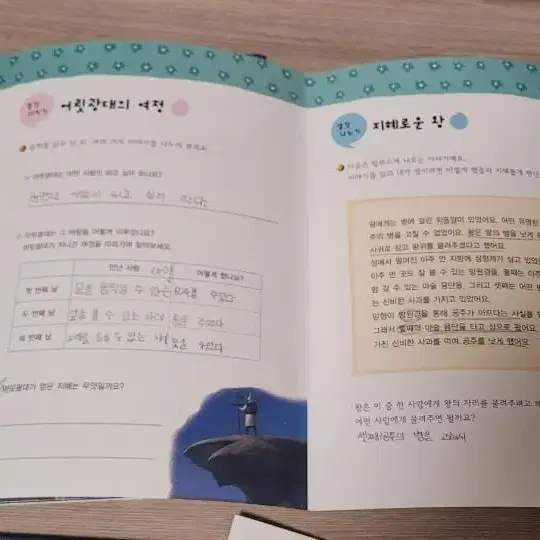 어릿광대의 여정
어릿광대는 어떤 사람이 되고 싶어 하나요?
사람이 되고 싶어 한다.
어릿광대는 그 바람을 어떻게 이루었나요?
어릿광대가 지나간 여정을 이야기해 말해보세요.
만난 사람 어떻게 했나요?
첫 번째 날 몸을 움직일 수 없는 주었다
두 번째 날 볼 수 없는 주었다
세 번째 날 수 없는 주었다
어릿광대가 얻은 지혜는 무엇일까요?
생각
나누기
지혜로운 왕
다음은 탈무드에 나오는 이야기예요.
이야기를 읽고 내가 왕이라면 어떻게 했을지 지혜롭게 판단
왕에게는 병에 걸린 외동딸이 있었어요. 어떤 유명한
주의 병을 고칠 수 없었어요. 왕은 딸의 병을 낫게
사위로 삼고 왕위를 물려주겠다고 했어요.
성에서 떨어진 아주 먼 지방에 삼형제가 살고 있었
아주 먼 곳도 살 볼 수 있는 망원경을, 둘째는 아주
람 갈 수 있는 마술 융단을, 그리고 셋째는 어떤 병
는 신비한 사과를 가지고 있었어요.
맏형이 망원경을 통해 공주가 아프다는 사실을 알
그래서 둘째의 마술 융단을 타고 성으로 왔어요.
가진 신비한 사과를 먹여 공주를 낫게 했어요.
왕은 이 중 한 사람에게 왕의 자리를 물려주려고 해
어떤 사람에게 물려주면 될까요?
셋째 공주의 병을